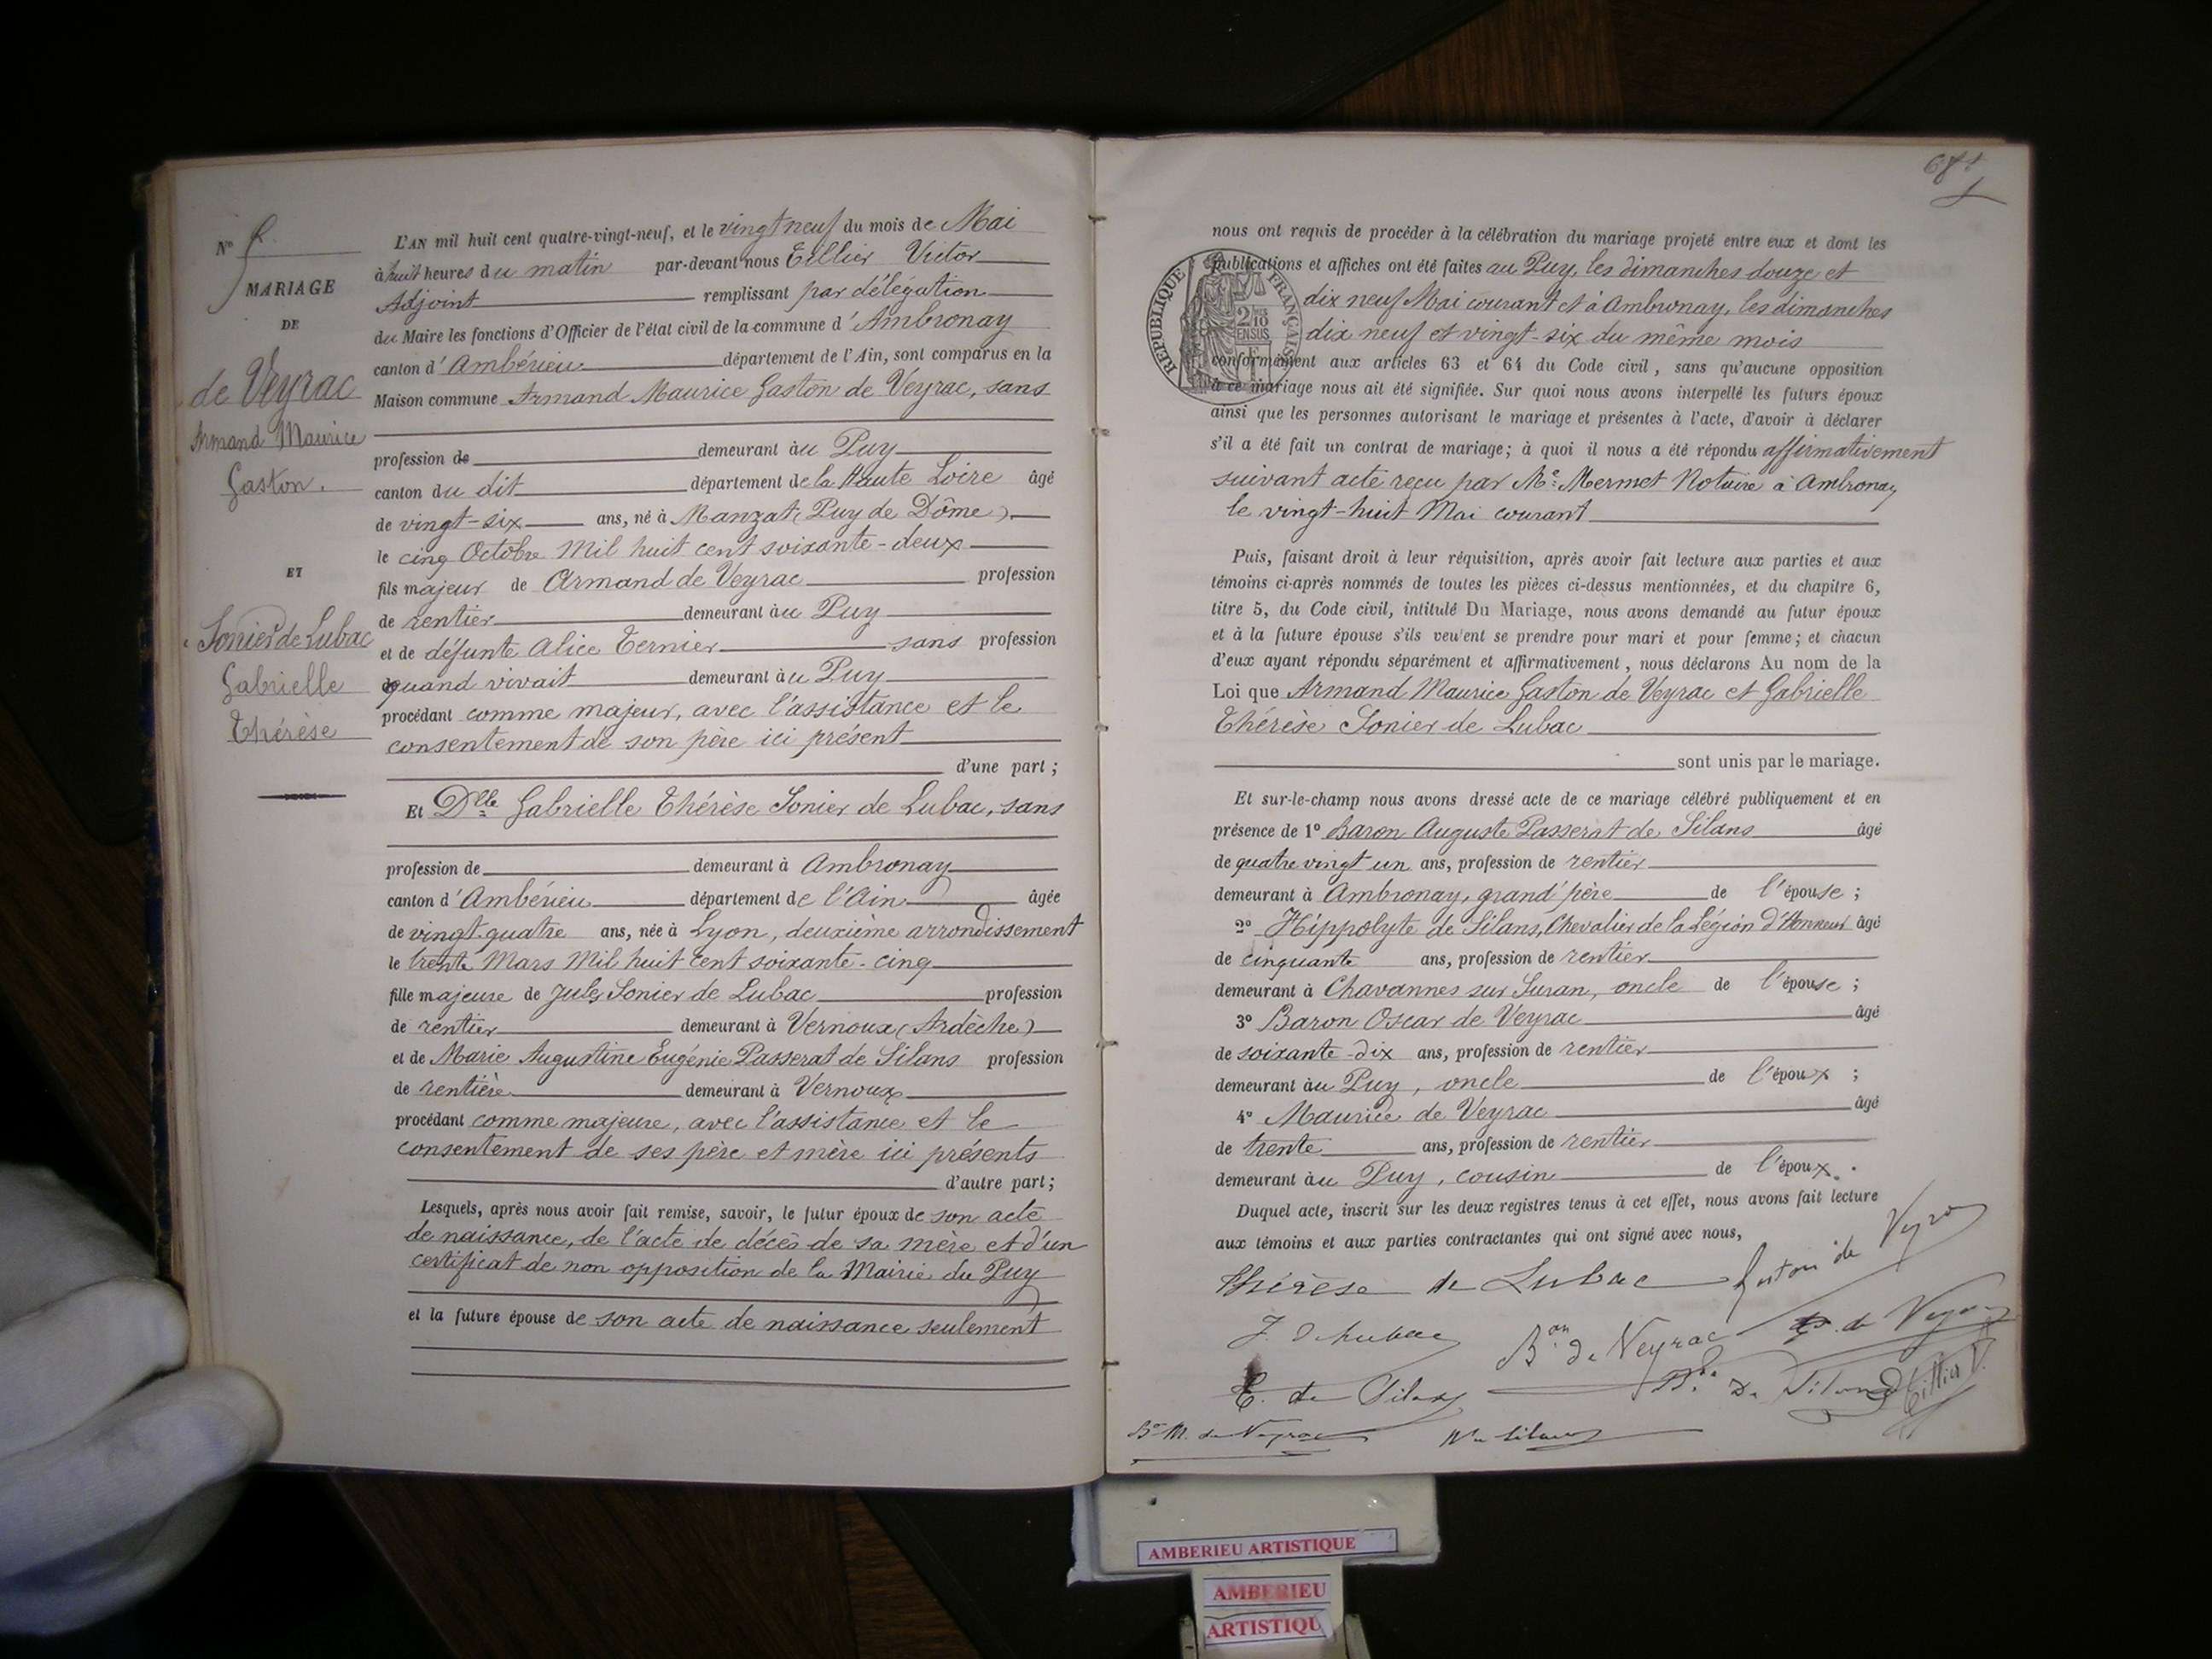 Nº
MARIAGE
DE
de Veyrac
Armand Maurice
Gaston.
ET
Sonier de Lubac
Gabrielle
Thérèse
L'AN mil huit cent quatre-vingt-neuf, et le vingt neuf du mois de Mai
à huit heures du matin par-devant nous Tillier Victor
Adjoint remplissant par délégation
du Maire les fonctions d'Officier de l'état civil de la commune d'Ambronay
canton d'Ambérieu département de l'Ain, sont comparus en la
Maison commune Armand Maurice Gaston de Veyrac, sans
profession de demeurant au Puy
canton du dit département de la Haute Loire âgé
de vingt-six ans, né à Manzat (Puy de Dôme)
le cinq Octobre Mil huit cent soixante-deux
fils majeur de Armand de Veyrac profession
de rentier demeurant au Puy
et de défunte Alice Ternier sans profession
quand vivait demeurant au Puy
procédant comme majeur, avec l'assistance et le
consentement de son père ici présent
d'une part ;
Et Dlle Gabrielle Thérèse Sonier de Lubac, sans
profession de demeurant à Ambronay
canton d'Ambérieu département de l'Ain âgée
de vingt-quatre ans, née à Lyon, deuxième arrondissement
le trente Mars Mil huit cent soixante-cinq
fille majeure de Jules Sonier de Lubac profession
de rentier demeurant à Vernoux (Ardèche)
et de Marie Augustine Eugénie Passerat de Silans profession
de rentière demeurant à Vernoux
procédant comme majeure, avec l'assistance et le
consentement de ses père et mère ici présents
d'autre part ;
Lesquels, après nous avoir fait remise, savoir, le futur époux de son acte
de naissance, de l'acte de décès de sa mère et d'un
certificat de non opposition de la Mairie du Puy
et la future épouse de son acte de naissance seulement
nous ont requis de procéder à la célébration du mariage projeté entre eux et dont les
publications et affiches ont été faites au Puy, les dimanches douze et
dix neuf Mai courant et à Ambronay, les dimanches
dix neuf et vingt-six du même mois
RÉPUBLIQUE FRANÇAISE
2/10 EN SUS
conformément aux articles 63 et 64 du Code civil, sans qu'aucune opposition
à ce mariage nous ait été signifiée. Sur quoi nous avons interpellé les futurs époux
ainsi que les personnes autorisant le mariage et présentes à l'acte, d'avoir à déclarer
s'il a été fait un contrat de mariage; à quoi il nous a été répondu affirmativement
suivant acte reçu par Me Mermet Notaire à Ambronay
le vingt-huit Mai courant
Puis, faisant droit à leur réquisition, après avoir fait lecture aux parties et aux
témoins ci-après nommés de toutes les pièces ci-dessus mentionnées, et du chapitre 6,
titre 5, du Code civil, intitulé Du Mariage, nous avons demandé au futur époux
et à la future épouse s'ils veulent se prendre pour mari et pour femme; et chacun
d'eux ayant répondu séparément et affirmativement, nous déclarons Au nom de la
Loi que Armand Maurice Gaston de Veyrac et Gabrielle
Thérèse Sonier de Lubac
sont unis par le mariage.
Et sur-le-champ nous avons dressé acte de ce mariage célébré publiquement et en
présence de 1º Baron Auguste Passerat de Silans âgé
de quatre vingt un ans, profession de rentier
demeurant à Ambronay, grand'père de l'épouse ;
2º Hippolyte de Silans, Chevalier de la Légion d'Honneur âgé
de cinquante ans, profession de rentier
demeurant à Chavannes sur Suran, oncle de l'épouse ;
3º Baron Oscar de Veyrac âgé
de soixante-dix ans, profession de rentier
demeurant au Puy, oncle de l'époux ;
4º Maurice de Veyrac âgé
de trente ans, profession de rentier
demeurant au Puy, cousin de l'époux.
Duquel acte, inscrit sur les deux registres tenus à cet effet, nous avons fait lecture
aux témoins et aux parties contractantes qui ont signé avec nous,
Thérèse de Lubac Gaston de Veyrac
J. de Lubac Bon de Veyrac de Veyrac
E. de Silans Bon de Silans Tillier V.
Bon M. de Veyrac H de Silans
AMBERIEU ARTISTIQUE
AMBERIEU
ARTISTIQU